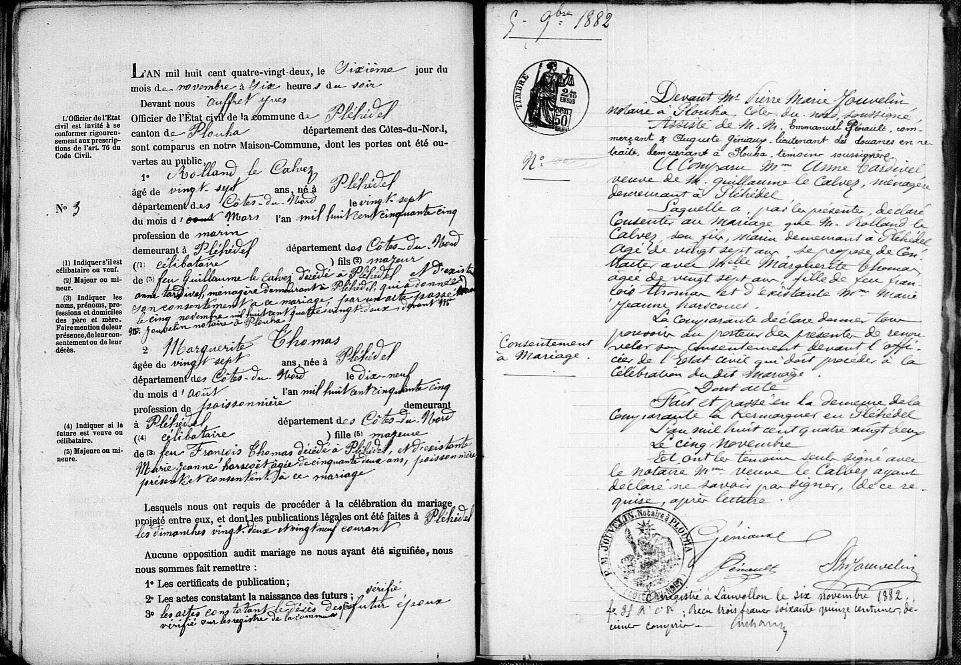 L'AN mil huit cent quatre-vingt-deux, le Sixième jour du
mois de novembre à Six heures du soir
Devant nous Auffret Yves
Officier de l'État civil de la commune de Pléhédel
canton de Plouha département des Côtes-du-Nord,
sont comparus en notre Maison-Commune, dont les portes ont été ou-
vertes au public
1° Rolland le Calvez
âgé de vingt sept ans, né à Pléhédel
département des Côtes-du-Nord le vingt-sept
du mois d' Mars l'an mil huit cent cinquante cinq
profession de marin
demeurant à Pléhédel département des Côtes-du-Nord
(1) célibataire ) fils (2) majeur
de (3) feu Guillaume le Calvez décédé à Pléhédel et d'existante
anne tardivel, ménagère demeurant à Pléhédel, qui a donné
son consentement à ce mariage, par un acte passé
le cinq novembre mil huit cent quatre vingt deux devant Me
Jouvelin notaire à Plouha
2 Marguerite Thomas
âgée de vingt sept ans, née à Pléhédel
département des Côtes-du-Nord le dix-neuf
du mois d'août l'an mil huit cent cinquante cinq
profession de poissonnière demeurant
à Pléhédel département des Côtes du Nord
(4) célibataire ) fille (5) majeure
de (3) feu François Thomas décédé à Pléhédel, et d'existante
Marie Jeanne âgée de cinquante deux ans, poissonnière
présente et consentent à ce mariage
Lesquels nous ont requis de procéder à la célébration du mariage
projeté entre eux, et dont les publications légales ont été faites à Pléhédel
les dimanches vingt-deux et vingt neuf courant
Aucune opposition audit mariage ne nous ayant été signifiée, nous
nous sommes fait remettre :
1° Les certificats de publication ;
2° Les actes constatant la naissance des futurs ; vérifié
3° les actes constatant le décès des futur époux
vérifié sur les registre de la commune
L'Officier de l'État
civil est invité à se
conformer rigoureu-
sement aux prescrip-
tions de l'art. 76 du
Code Civil.
N° 3
(1) Indiquer s'il est
célibataire ou veuf.
(2) Majeur ou mi-
neur.
(3) Indiquer les
noms, prénoms, pro-
fessions et domiciles
des père et mère.
Faire mention de leur
présence, de leur con-
sentement ou de leur
décès.
(4) Indiquer si la
future est veuve ou
célibataire.
(5) Majeure ou mi-
neure.
5 9bre 1882
TIMBRE
50
N°
Consentement
à Mariage.
Devant Me Pierre Marie Jouvelin
notaire à Plouha Côtes du nord, soussigné,
Assisté de M. M. Emmanuel Pérault, com-
merçant & Auguste Géniaux, lieutenant des douanes en re-
traite, demeurant à Plouha, témoins soussignés.
A Comparu Mme Anne Tardivel
veuve de M. guillaume le Calvez, ménagère
demeurant à Pléhédel
Laquelle a, par les présentes, déclaré
Consentir au mariage que M. Rolland le
Calvez, son fils, Marin demeurant à Pléhédel
agé de vingt sept ans, se propose de Con-
tracter avec Melle Marguerite Thomas
agée de vingt sept ans, fille de feu fran-
çois thomas et d'existante Mme Marie
Jeanne
La Comparante déclare donner tout
pouvoir au porteur des présentes de renou-
veler son Consentement devant l'offi-
cier de l'Etat civil qui doit procéder à la
célébration du dit Mariage.
Dont acte
Fait et passé en la demeure de la
Comparante à Kermarquer en Pléhédel
L'an mil huit cent quatre vingt deux
Le cinq Novembre
Et ont les témoins seuls signé avec
le notaire Mme veuve le Calvez ayant
déclaré ne savoir pas signer, de ce re-
quise, après lecture.
P. M. JOUVELIN, Notaire à PLOUHA
Géniaux
Pérault
Jouvelin
Enregistré à Lanvollon le six novembre 1882,
Reçu trois francs soixante quinze centimes, dé-
cimes compris